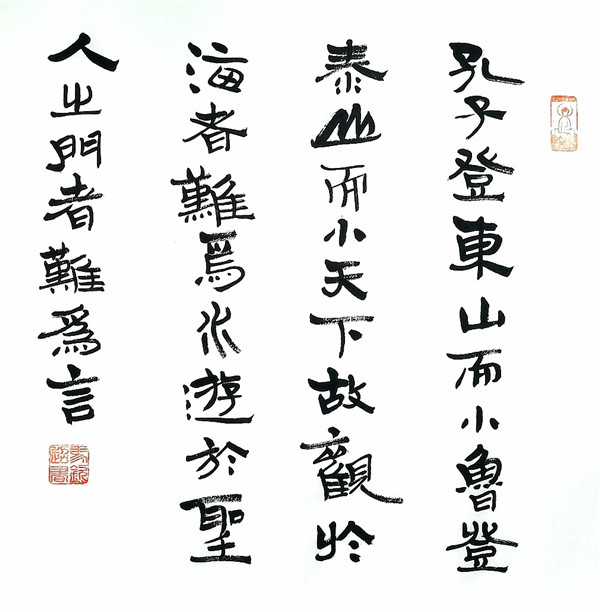 孔子登東山而小魯登
泰山而小天下故觀於
海者難爲水遊於聖
人之門者難爲言